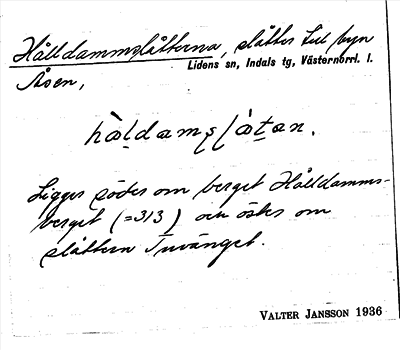 Hålldammsslåtterna, slåtter till byn
Lidens sn, Indals tg, Västernorrl. l.
Åsen,
Ligger söder om berget Hålldamms-
berget (=313) och öster om
slåttern Tuvänget.
VALTER JANSSON 1936